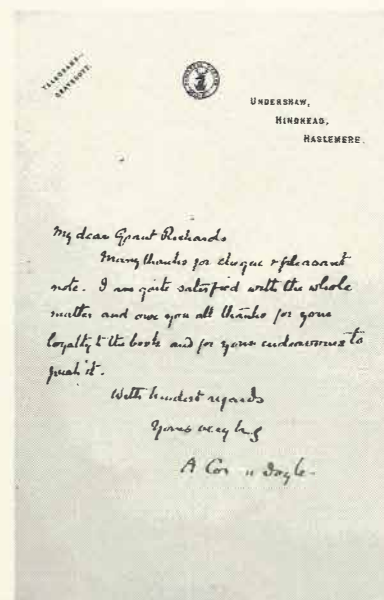 TELEGRAMS—
GRAYSHOTT.
UNDERSHAW,
HINDHEAD,
HASLEMERE.
My dear Grant Richards
Many thanks for cheque & pleasant
note. I am quite satisfied with the whole
matter and owe you all thanks for your
loyalty to the book and for your endeavours to
push it.
With kindest regards
Yours very
A Con n Doyle.